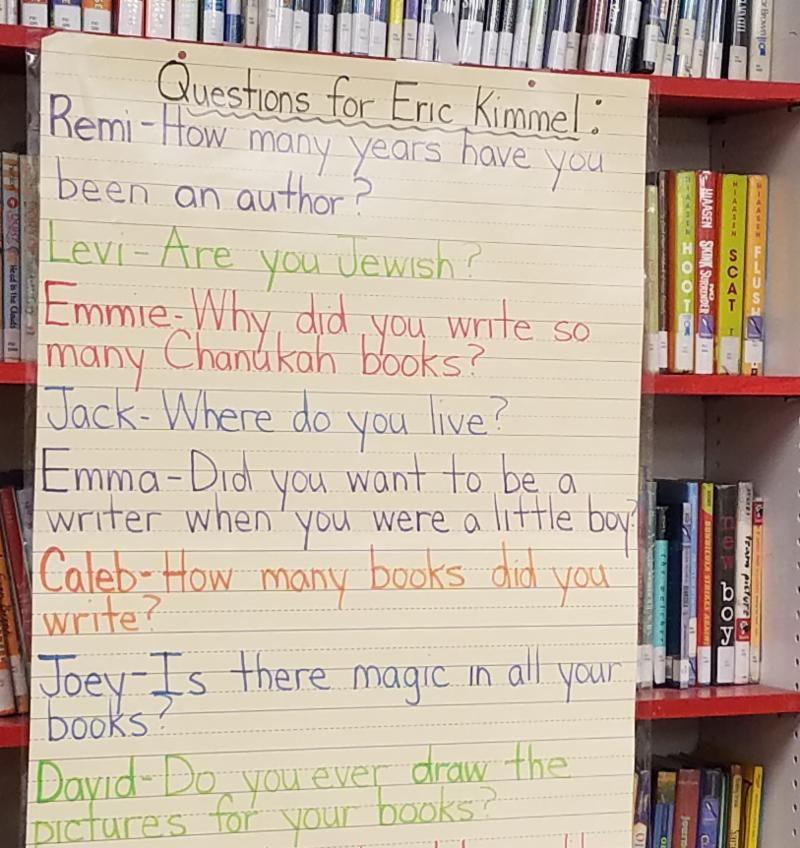 Questions for Eric Kimmel:
Remi-How many years have you
been an author?
Levi-Are you Jewish?
Emmie-Why did you write so
many Chanukah books?
Jack-Where do you live?
Emma-Did you want to be a
writer when you were a little boy?
Caleb-How many books did you
write?
Joey-Is there magic in all your
books?
David-Do you ever draw the
pictures for your books?
HIAASEN HOOT
HIAASEN SKINK NO SURRENDER
HIAASEN SCAT
HIAASEN FLUSH
new boy